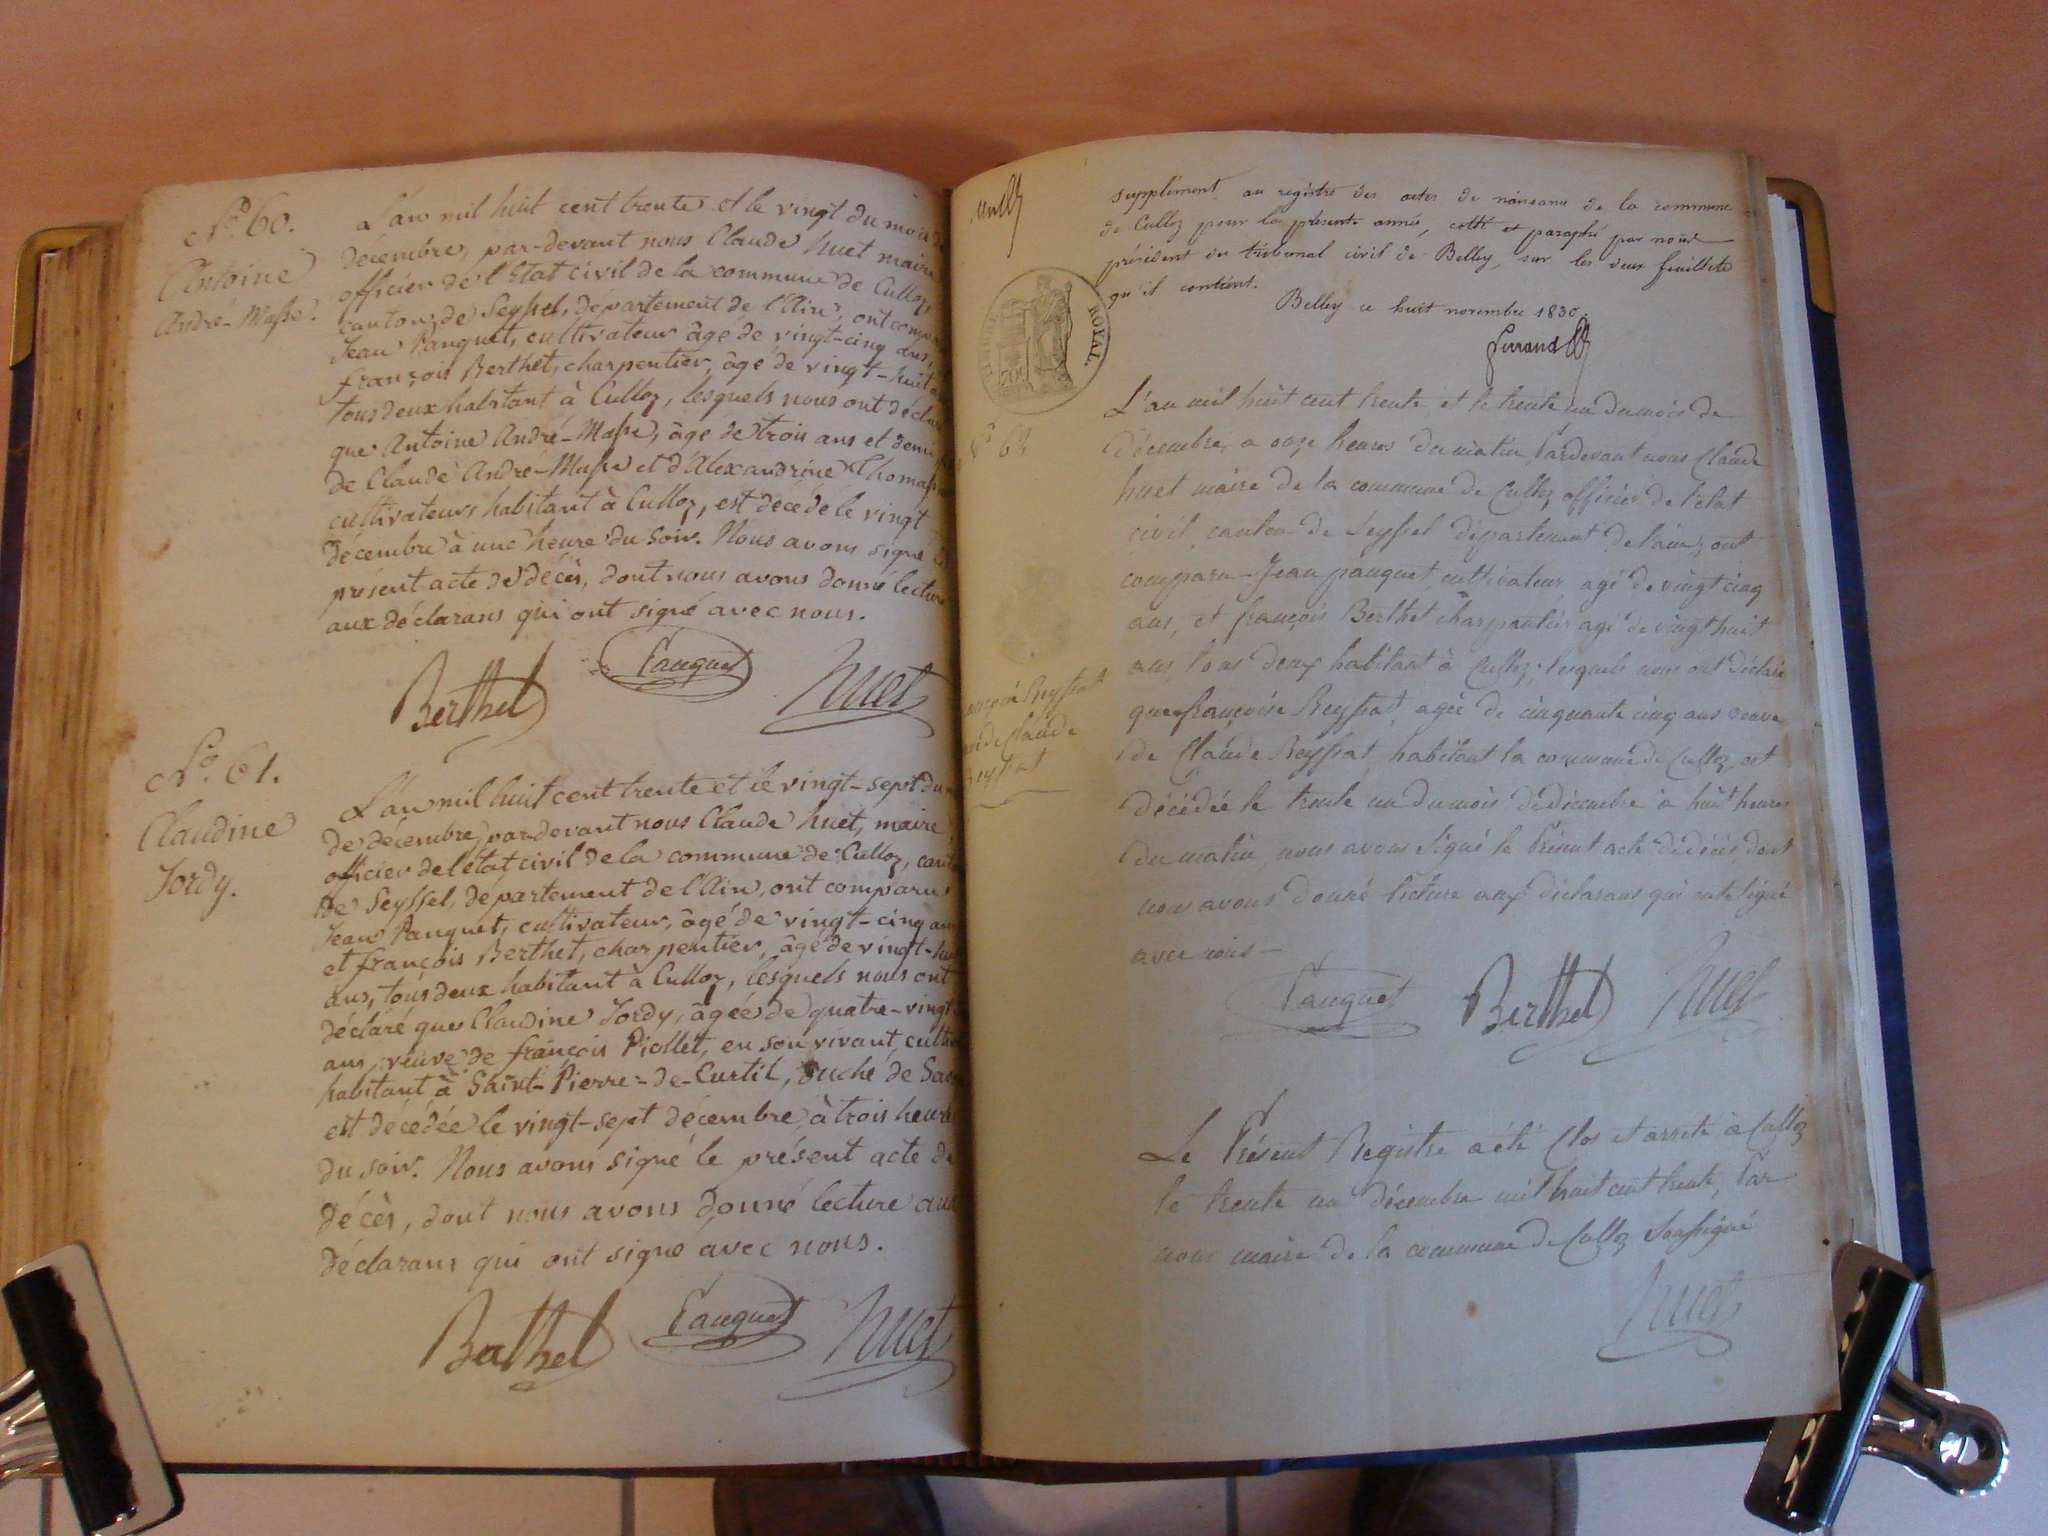 N.° 60.
Antoine
André-Masse.
L'an mil huit cent trente et le vingt du mois de
décembre, par-devant nous Claude huet maire
officier de l'Etat civil de la commune de Culloz,
canton de Seyssel, département de l'Ain, ont comparu
Jean Pauquet, cultivateur âgé de vingt-cinq ans,
françois Berthet, charpentier, âgé de vingt-huit
tous deux habitant à Culloz, lesquels nous ont déclaré
que Antoine André-Masse, âge de trois ans et demi
de Claude André-Masse et d'Alexandrine Thomas
cultivateurs habitant à Culloz, est décédé le vingt
décembre à une heure du Soir. Nous avons signé le
présent acte de décès, dont nous avons donné lecture
aux déclarans qui ont signé avec nous.
Berthet Pauquet huet
N.° 61.
Claudine
Jordy.
L'an mil huit cent trente et le vingt-sept du
de décembre, par-devant nous Claude huet, maire
officier de l'état civil de la commune de Culloz, canton
de Seyssel, département de l'Ain, ont comparu
Jean Pauquet, cultivateur, âgé de vingt-cinq ans
et françois Berthet, charpentier, âgé de vingt-huit
ans, tous deux habitant à Culloz, lesquels nous ont
déclaré que Claudine Jordy, âgée de quatre-vingt
ans, veuve de françois Piollet, en son vivant, cultiv
habitant à Saint-Pierre-de-Curtil, duché de Savo
est décédée le vingt-sept décembre à trois heures
du soir. Nous avons signé le présent acte de
décès, dont nous avons donné lecture aux
déclarans qui ont signé avec nous.
Berthet Pauquet huet
supplément au registre des actes de naissance de la commune
de Culloz pour la présente année, cotté et paraphé par nous
président du tribunal civil de Belley, sur les deux feuillets
qu'il contient.
Belley ce huit novembre 1830.
ROYAL.
N° 62
L'an mil huit cent trente et le trente un du mois de
Décembre, a onze heures du matin, Pardevant nous Claude
huet maire de la commune de Culloz officier de l'état
civil, canton de Seyssel département de l'ain, ont
comparu Jean pauquet cultivateur agé de vingt cinq
ans, et françois Berthet charpantier agé de vingt huit
ans, tous deux habitant à Culloz, lesquels nous ont déclaré
que françoise Reyssat, agée de cinquante cinq ans veuve
de Claude Reyssat, habitant la commune de Culloz, est
décédée le trente un du mois de décembre à huit heures
du matin, nous avons signé le Présent acte de décès, dont
nous avons donné lecture aux déclarans qui ont signé
avec nous
françoise Reyssat
veuve de Claude
Reyssat
Pauquet Berthet huet
Le Présent Registre a été Clos et arreté à Culloz
le trente un décembre mil huit cent trente, Par
nous maire de la commune de Culloz Soussigné
huet